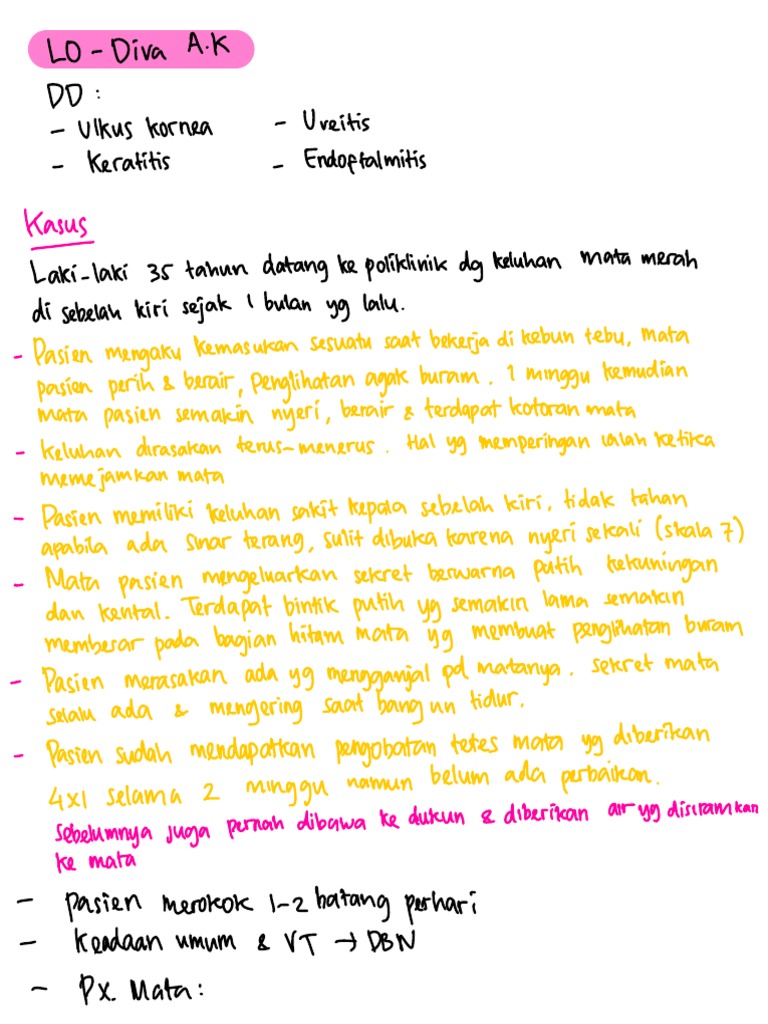 LO - Diva A.K
DD :
- Ulkus kornea - Uveitis
- Keratitis - Endoftalmitis
Kasus
Laki-laki 35 tahun datang ke poliklinik dg keluhan mata merah
di sebelah kiri sejak 1 bulan yg lalu.
- Pasien mengaku kemasukan sesuatu saat bekerja di kebun tebu, mata
pasien perih & berair, penglihatan agak buram. 1 minggu kemudian
mata pasien semakin nyeri, berair & terdapat kotoran mata
- Keluhan dirasakan terus-menerus. Hal yg memperingan ialah ketika
memejamkan mata
- Pasien memiliki keluhan sakit kepala sebelah kiri, tidak tahan
apabila ada sinar terang, sulit dibuka karena nyeri sekali (skala 7)
- Mata pasien mengeluarkan sekret berwarna putih kekuningan
dan kental. Terdapat bintik putih yg semakin lama semakin
membesar pada bagian hitam mata yg membuat penglihatan buram
- Pasien merasakan ada yg mengganjal pd matanya. sekret mata
selalu ada & mengering saat bangun tidur.
- Pasien sudah mendapatkan pengobatan tetes mata yg diberikan
4x1 selama 2 minggu namun belum ada perbaikan.
Sebelumnya juga pernah dibawa ke dukun & diberikan air yg disiramkan
ke mata
- Pasien merokok 1-2 batang perhari
- Keadaan umum & VT → DBN
- Px. Mata: